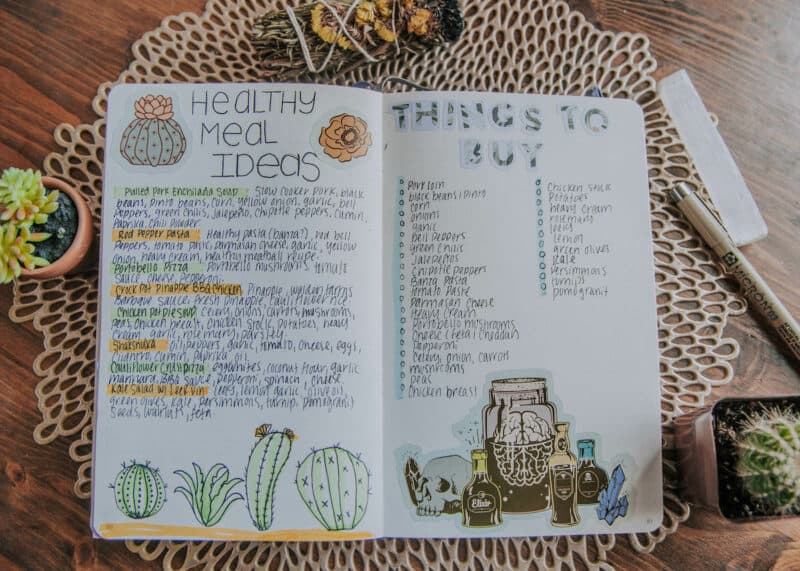 HEALTHY
MEAL
IDEAS
Pulled Pork Enchilada Soup slow cooker pork, black
beans, pinto beans, corn, yellow onion, garlic, bell
peppers, green chilis, jalapeño, chipotle peppers, cumin,
paprika, chili powder
Red Pepper Pasta Healthy pasta (banza?), red bell
peppers, tomato paste, parmesan cheese, garlic, yellow
onion, heavy cream, healthy meatball recipe.
Portobello Pizza Portobello mushrooms, tomato
sauce, cheese, pepperoni
Crock Pot Pinapple BBQ Chicken Pinapple, walden farms
Barbque sauce, fresh pinapple, cauliflower rice
Chicken Pot Pie Soup Celery, onions, carrots, mushrooms,
peas, chicken breast, chicken stock, potatoes, heavy
cream, garlic, rosemary, parsley
Shakshuka oil, peppers, garlic, tomato, cheese, eggs,
cilantro, cumin, paprika, oil
Cauliflower Crust Pizza eggwhites, coconut flour, garlic
marinara, BBQ sauce, pepperoni, spinach, cheese
Kale Salad w/ Leek Vin leeks, lemon, garlic, olive oil,
green olives, kale, persimmons, turnip, pomegranit
seeds, walnuts, feta
THINGS TO
BUY
Pork Loin
black beans/pinto
corn
onions
garlic
bell peppers
green chilis
Jalapeños
Chipotle peppers
Banza Pasta
tomato Paste
Parmesan Cheese
Heavy Cream
Portobello mushrooms
Cheese (feta/cheddar)
Pepperoni
Celery, onion, carrot
mushrooms
peas
Chicken breast
Chicken stock
Potatoes
heavy cream
rosemary
leeks
lemon
green olives
Kale
Persimmons
turnips
pomogranit
Elixir
MICRON